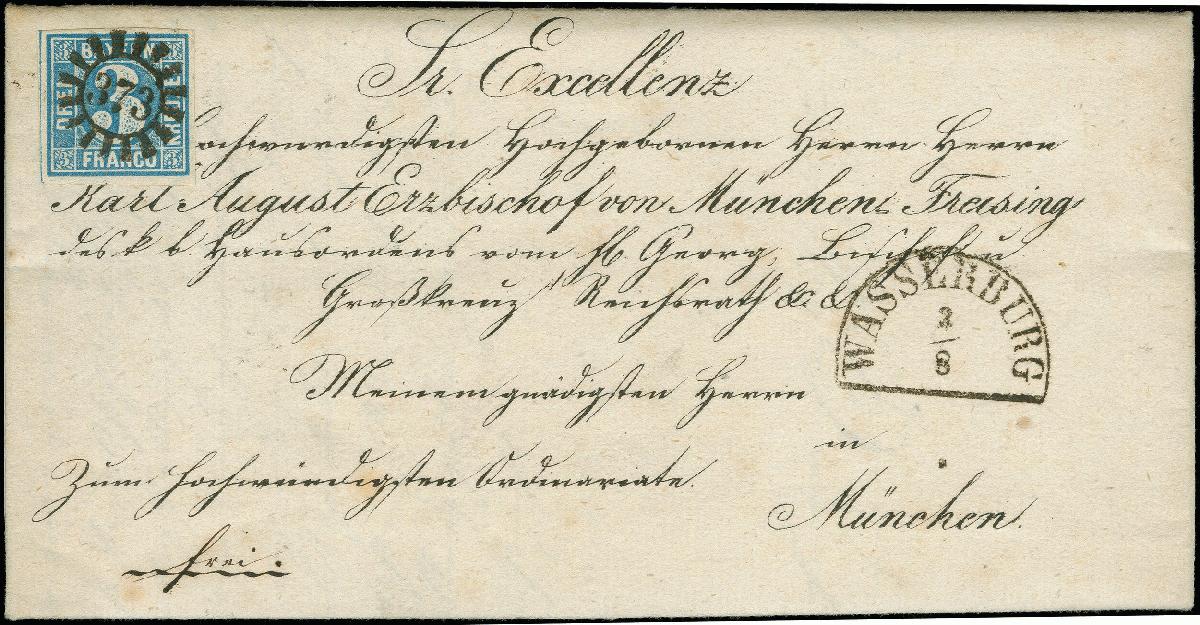 BAYERN
DREI
KREUZER
FRANCO
373
Sr. Excellenz
Hochwürdigsten Hochgebornen Herrn Herrn
Karl August Erzbischof von München-Freising
des k b Hausordens vom hl. Georg,
Großkreuz Reichsrath &c &
WASSERBURG
2
8
Meinem gnädigsten Herrn
in
Zum hochwürdigsten Ordinariate.
München.
frei.